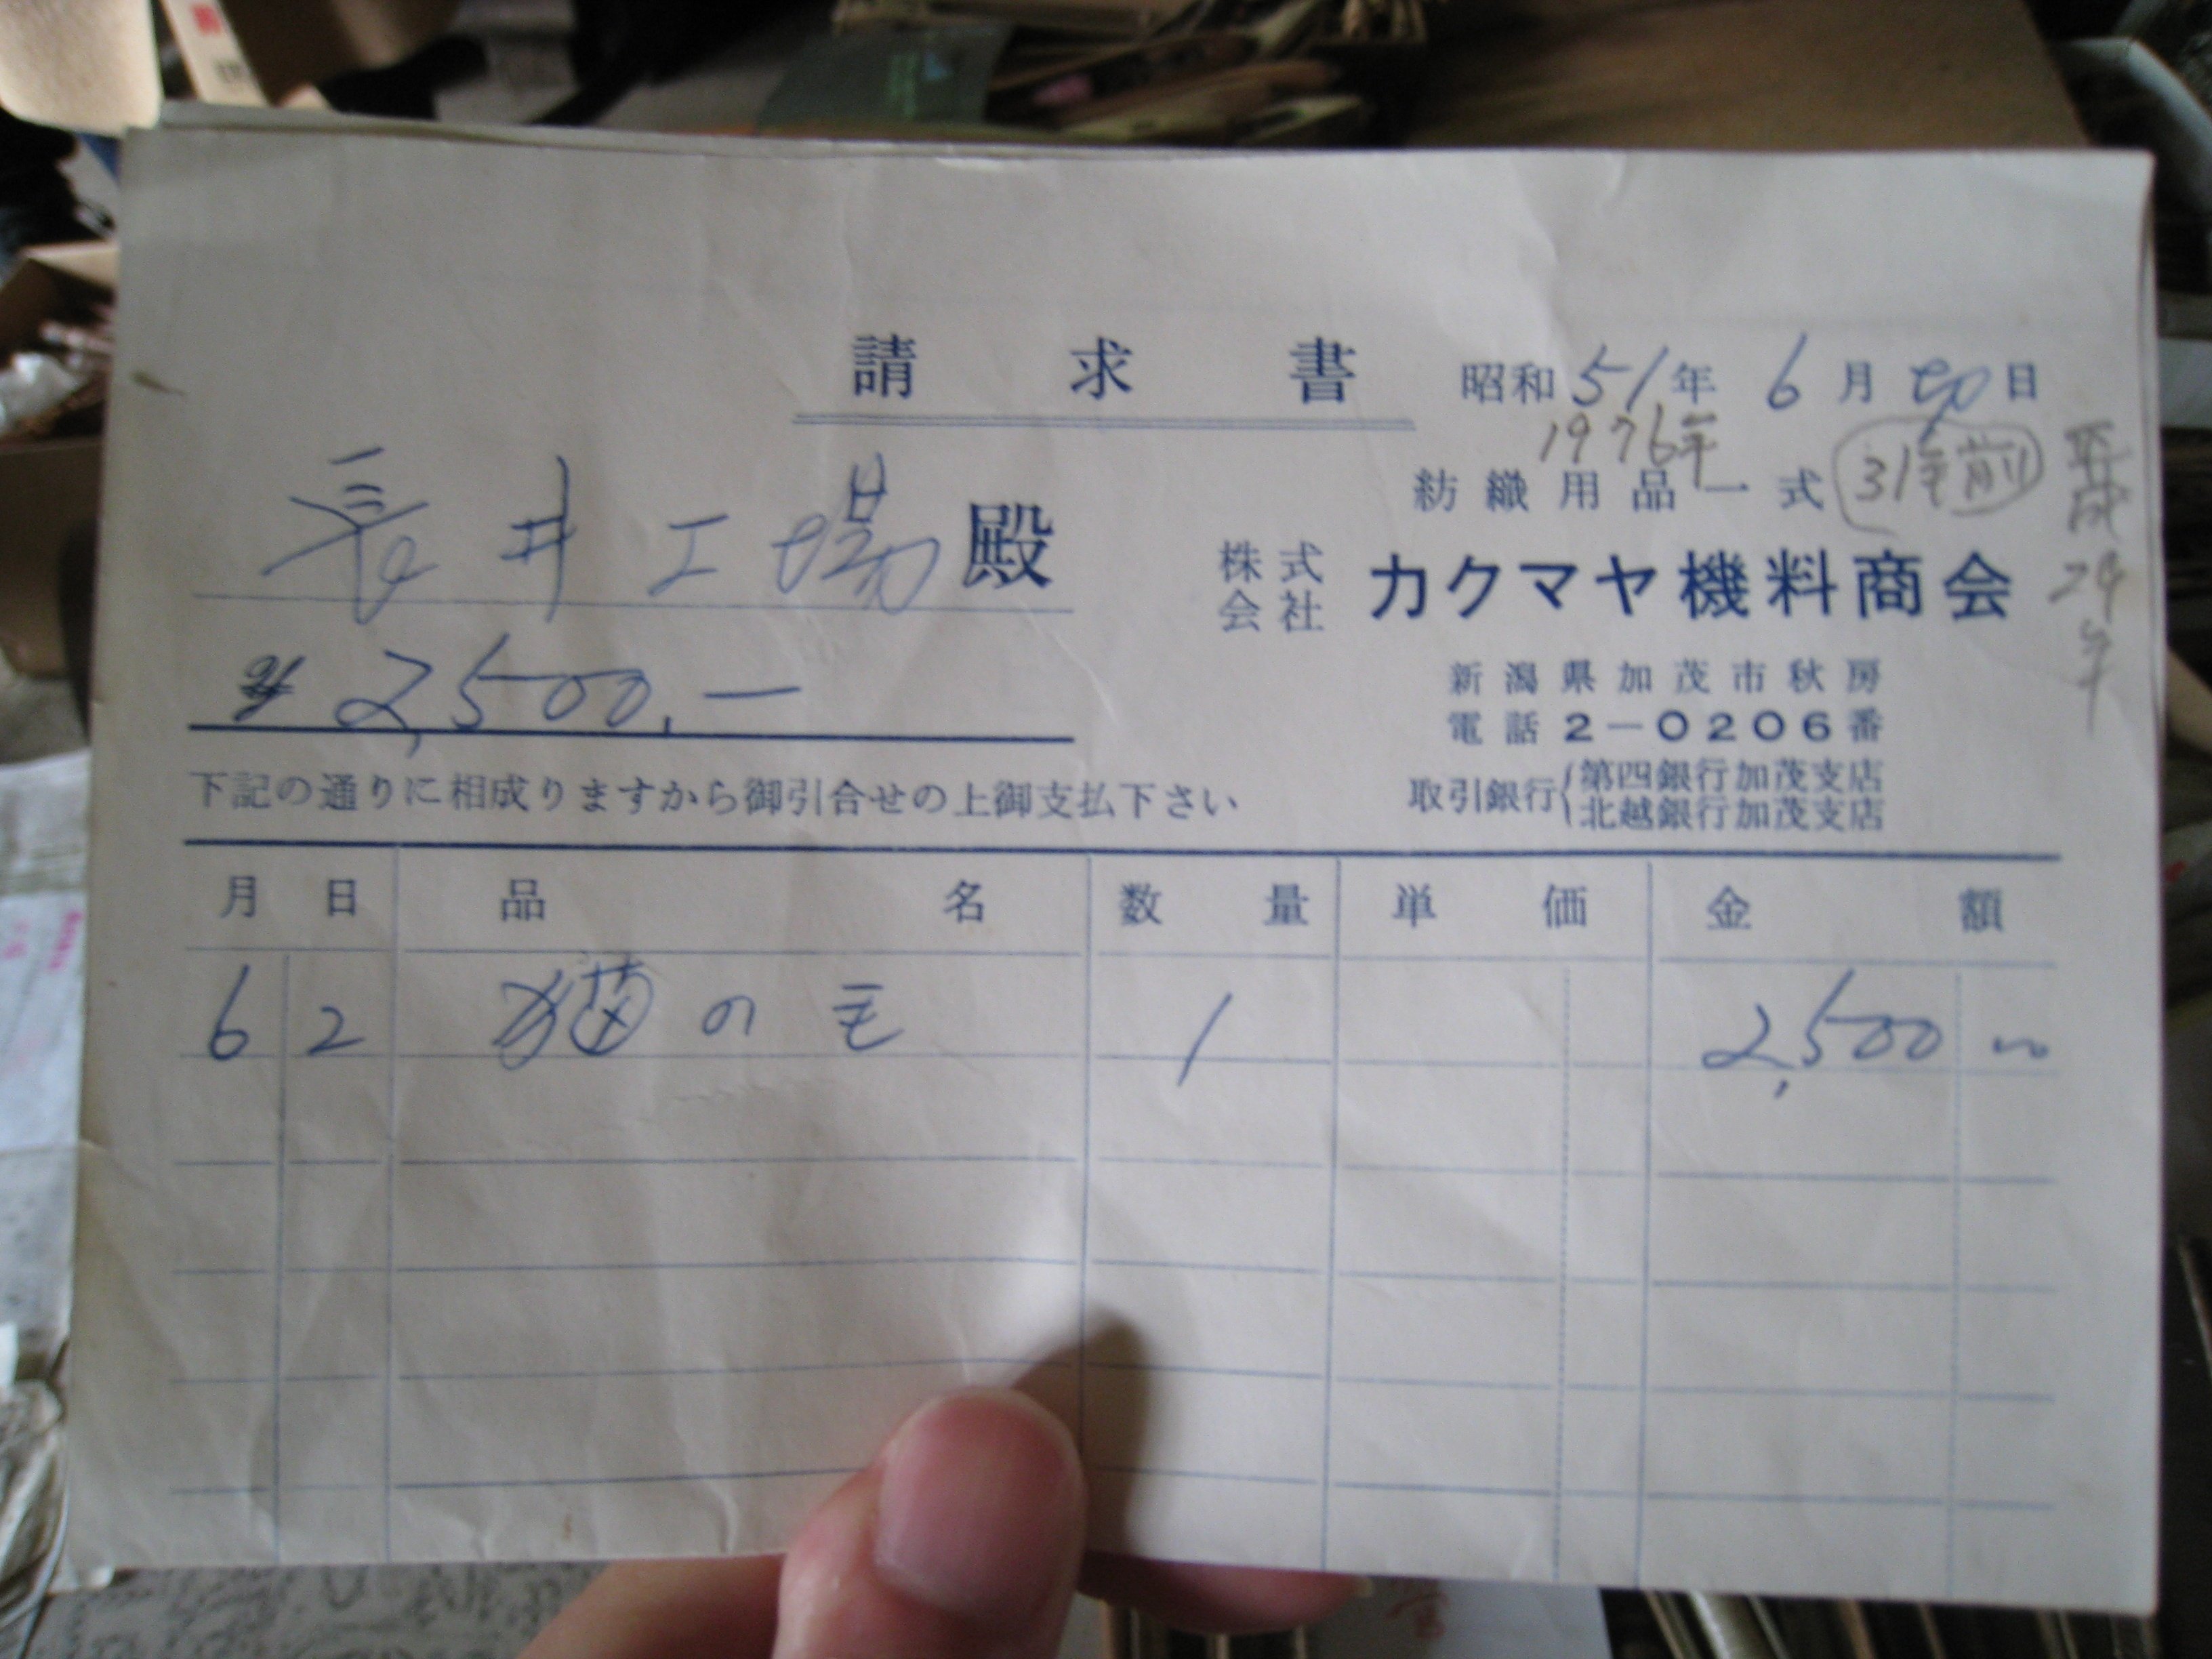 請求書
昭和51年 6月 日
1976年
31年前
紡織用品一式
長井工場殿
株式会社 カクマヤ機料商会
平成
年
¥2,500.―
新潟県加茂市秋房
電話2-0206番
下記の通りに相成りますから御引合せの上御支払下さい
取引銀行{第四銀行加茂支店
北越銀行加茂支店
月 日 品名 数量 単価 金額
6 2 猫の毛 1 2,500